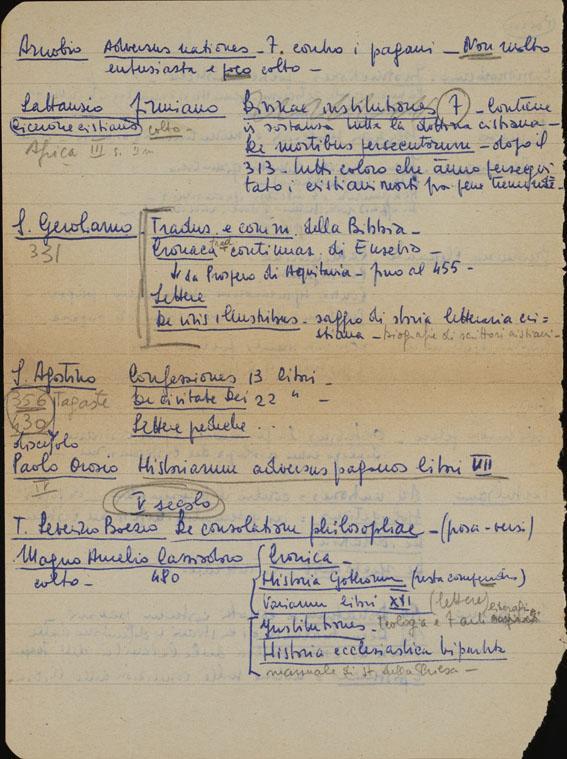 Arnobio Adversus nationes - 7. contro i pagani - Non molto
entusiasta e poco colto -
Lattanzio Firmiano Divinae institutiones 7 - Contiene
Cicerone cristiano colto - in sostanza tutta la dottrina cristiana -
Africa III s. De mortibus persecutorum - dopo il
313 - tutti coloro che ànno persegui
tato i cristiani morti fra pene tremende -
S. Gerolamo Traduz. e comm. della Bibbia -
331 Cronaca trad. + continuaz. di Eusebio -
da Prospero di Aquitania - fino al 455 -
Lettere
De viris illustribus - saggio di storia letteraria cri=
stiana - biografie di scrittori cristiani -
S. Agostino Confessiones 13 libri -
356 Tagaste De civitate Dei 22 " -
430 Lettere prediche ..
discepolo
Paolo Orosio Historiarum adversus paganos libri VII
IV
V secolo
T. Severino Boezio De consolatione philosophiae - (prosa - versi)
Magno Aurelio Cassiodoro Cronica -
colto - 480 Historia Gothorum (resta compendio)
Variarum libri XII (lettere)
Institutiones - teologia e 7 arti
Historia ecclesiastica tripartita
manuale di st. della Chiesa -